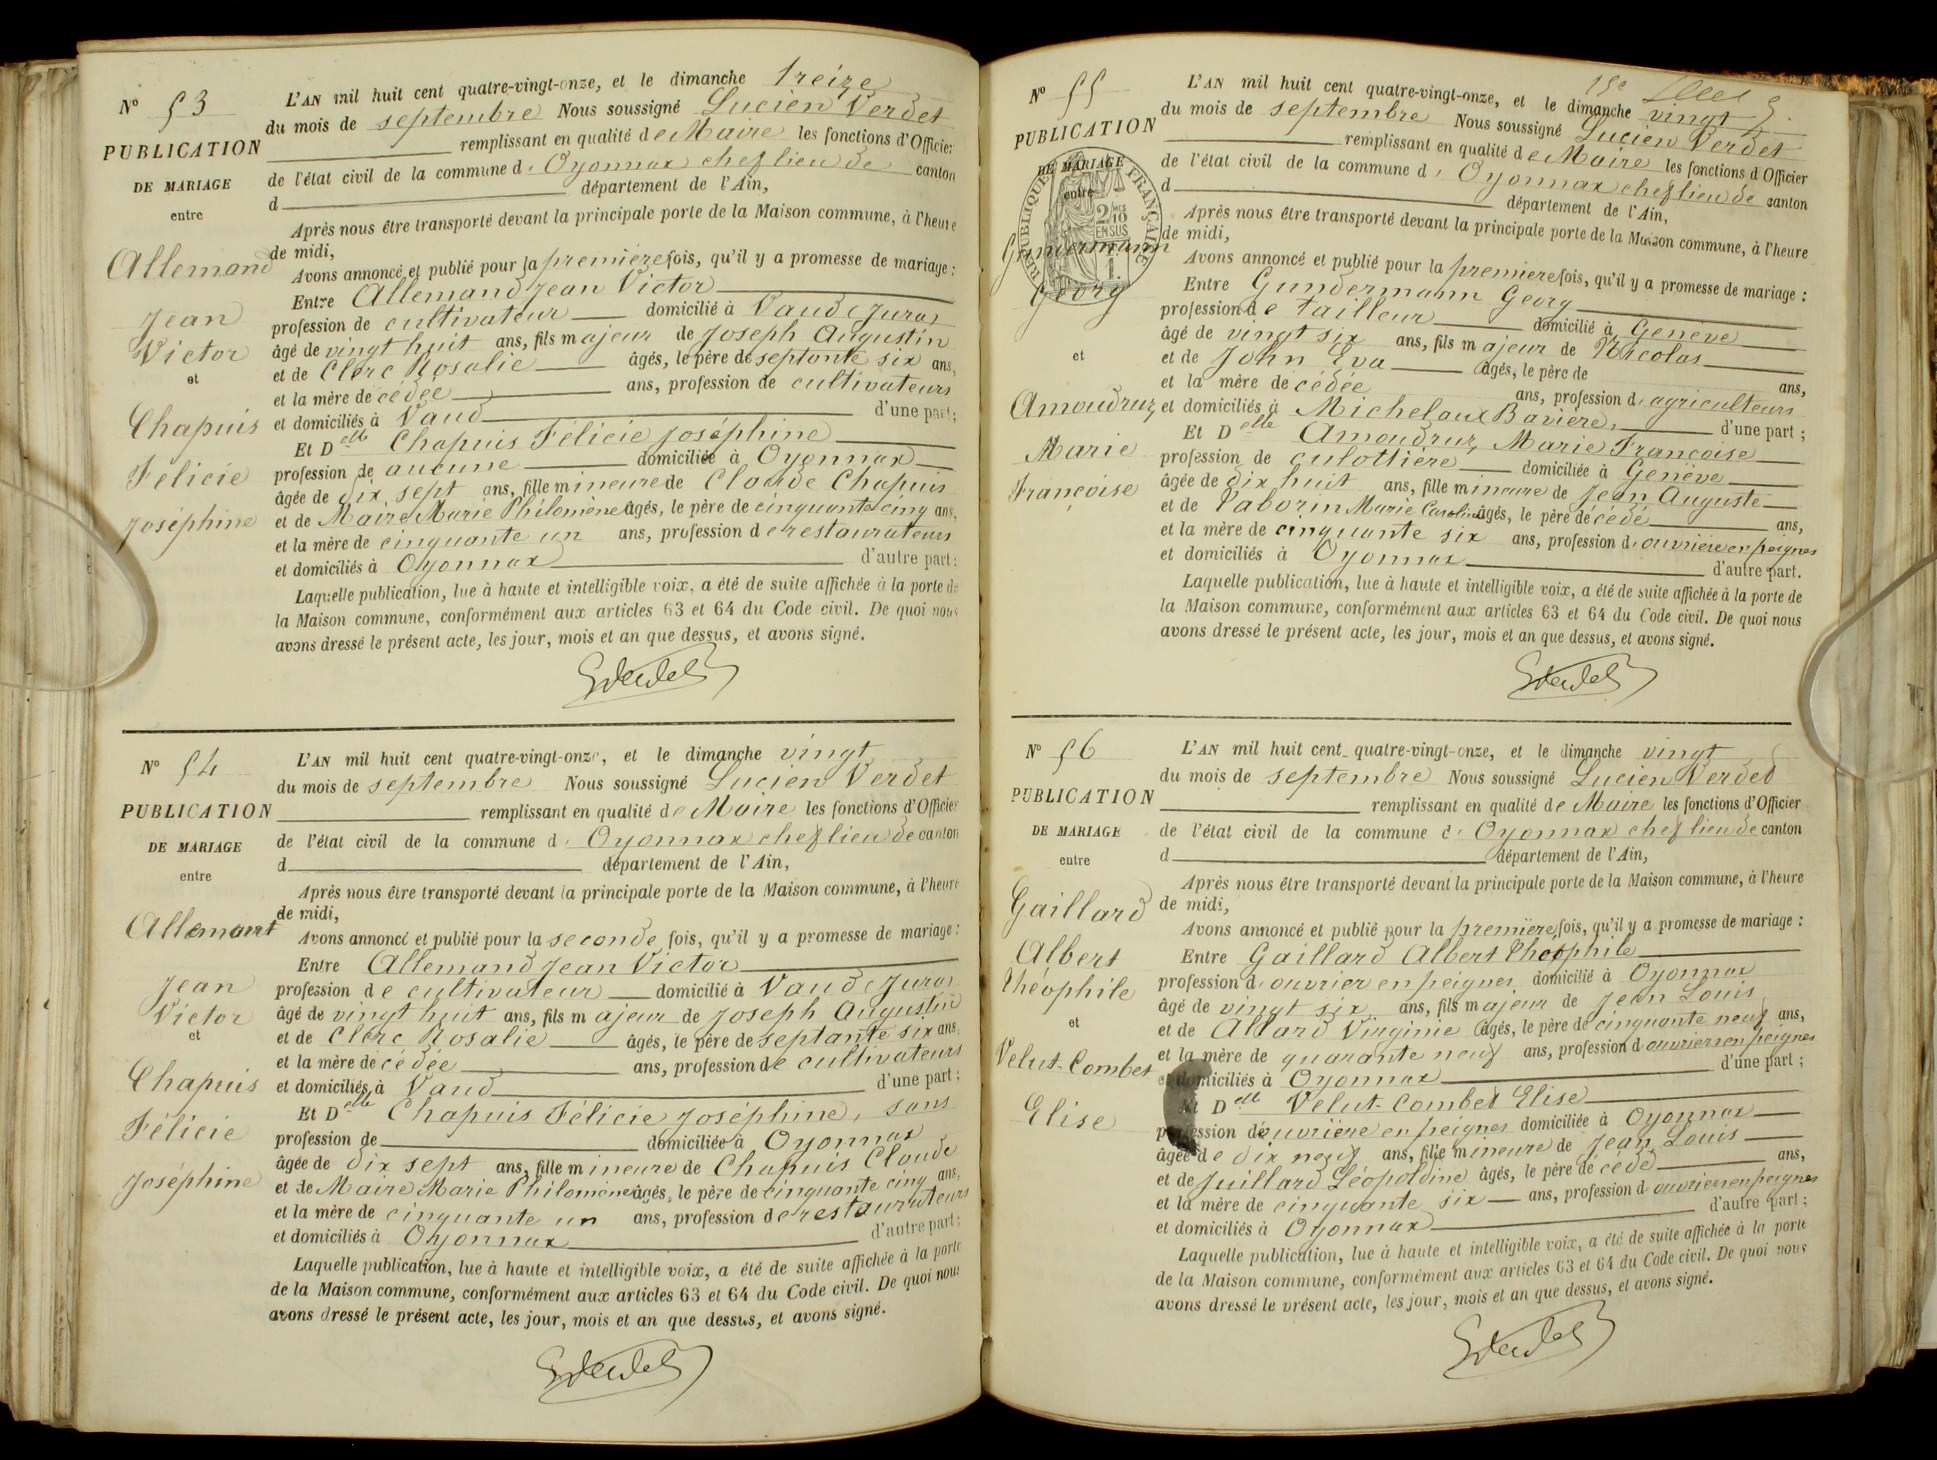 N° 53
PUBLICATION
DE MARIAGE
entre
Allemand
Jean
Victor
et
Chapuis
Félicie
Joséphine
L'AN mil huit cent quatre-vingt-onze, et le dimanche treize
du mois de septembre Nous soussigné Lucien Verdet
remplissant en qualité de Maire les fonctions d'Officier
de l'état civil de la commune d' Oyonnax chef lieu de canton
d département de l'Ain,
Après nous être transporté devant la principale porte de la Maison commune, à l'heure
de midi,
Avons annoncé et publié pour la première fois, qu'il y a promesse de mariage :
Entre Allemand Jean Victor
profession de cultivateur domicilié à Vaud (Jura)
âgé de vingt huit ans, fils majeur de Joseph Augustin
et de Clerc Rosalie âgés, le père de septante six ans,
et la mère décédée ans, profession de cultivateurs
et domiciliés à Vaud d'une part;
Et Delle Chapuis Félicie Joséphine
profession de aucune domiciliée à Oyonnax
âgée de dix sept ans, fille mineure de Claude Chapuis
et de Maire Marie Philomène âgés, le père de cinquante cinq ans,
et la mère de cinquante un ans, profession de restaurateurs
et domiciliés à Oyonnax d'autre part:
Laquelle publication, lue à haute et intelligible voix, a été de suite affichée à la porte de
la Maison commune, conformément aux articles 63 et 64 du Code civil. De quoi nous
avons dressé le présent acte, les jour, mois et an que dessus, et avons signé.
N° 54
PUBLICATION
DE MARIAGE
entre
Allemant
Jean
Victor
et
Chapuis
Félicie
Joséphine
L'AN mil huit cent quatre-vingt-onze, et le dimanche vingt
du mois de septembre Nous soussigné Lucien Verdet
remplissant en qualité de Maire les fonctions d'Officier
de l'état civil de la commune d' Oyonnax chef lieu de canton
d département de l'Ain,
Après nous être transporté devant la principale porte de la Maison commune, à l'heure
de midi,
Avons annoncé et publié pour la seconde fois, qu'il y a promesse de mariage :
Entre Allemand Jean Victor
profession de cultivateur domicilié à Vaud (Jura)
âgé de vingt huit ans, fils majeur de Joseph Augustin
et de Clerc Rosalie âgés, le père de septante six ans,
et la mère décédée ans, profession de cultivateurs
et domiciliés à Vaud d'une part ;
Et Delle Chapuis Félicie Joséphine, sans
profession de domiciliée à Oyonnax
âgée de dix sept ans, fille mineure de Chapuis Claude
et de Maire Marie Philomène âgés, le père de cinquante cinq ans,
et la mère de cinquante un ans, profession de restaurateurs
et domiciliés à Oyonnax d'autre part ;
Laquelle publication, lue à haute et intelligible voix, a été de suite affichée à la porte
de la Maison commune, conformément aux articles 63 et 64 du Code civil. De quoi nous
avons dressé le présent acte, les jour, mois et an que dessus, et avons signé.
N° 55
PUBLICATION
DE MARIAGE
entre
RÉPUBLIQUE FRANÇAISE
2/10
EN SUS
1.
Gundermann
Georg
et
Amoudruz
Marie
Françoise
L'AN mil huit cent quatre-vingt-onze, et le dimanche vingt
du mois de septembre Nous soussigné Lucien Verdet
remplissant en qualité de Maire les fonctions d'Officier
de l'état civil de la commune d' Oyonnax chef lieu de canton
d département de l'Ain,
Après nous être transporté devant la principale porte de la Maison commune, à l'heure
de midi,
Avons annoncé et publié pour la première fois, qu'il y a promesse de mariage :
Entre Gundermann Georg
profession de tailleur domicilié à Genève
âgé de vingt six ans, fils majeur de Nicolas
et de John Eva âgés, le père de ans,
et la mère décédée ans, profession d' agriculteurs
et domiciliés à Michelaux Bavière, d'une part ;
Et Delle Amoudruz, Marie Françoise
profession de culottière domiciliée à Genève
âgée de dix huit ans, fille mineure de Jean Auguste
et de Vaborin Marie Caroline âgés, le père décédé ans,
et la mère de cinquante six ans, profession d' ouvrière en peignes
et domiciliés à Oyonnax d'autre part.
Laquelle publication, lue à haute et intelligible voix, a été de suite affichée à la porte de
la Maison commune, conformément aux articles 63 et 64 du Code civil. De quoi nous
avons dressé le présent acte, les jour, mois et an que dessus, et avons signé.
N° 56
PUBLICATION
DE MARIAGE
entre
Gaillard
Albert
Théophile
et
Velut-Combet
Elise
L'AN mil huit cent quatre-vingt-onze, et le dimanche vingt
du mois de septembre Nous soussigné Lucien Verdet
remplissant en qualité de Maire les fonctions d'Officier
de l'état civil de la commune d' Oyonnax chef lieu de canton
d département de l'Ain,
Après nous être transporté devant la principale porte de la Maison commune, à l'heure
de midi,
Avons annoncé et publié pour la première fois, qu'il y a promesse de mariage :
Entre Gaillard Albert Théophile
profession d' ouvrier en peignes domicilié à Oyonnax
âgé de vingt six ans, fils majeur de Jean Louis
et de Allard Virginie âgés, le père de cinquante neuf ans,
et la mère de quarante neuf ans, profession d' ouvriers en peignes
et domiciliés à Oyonnax d'une part ;
Et Delle Velut-Combet Elise
profession d'ouvrière en peignes domiciliée à Oyonnax
âgée de dix neuf ans, fille mineure de Jean Louis
et de Juillard Léopoldine âgés, le père décédé ans,
et la mère de cinquante six ans, profession d' ouvriers en peignes
et domiciliés à Oyonnax d'autre part ;
Laquelle publication, lue à haute et intelligible voix, a été de suite affichée à la porte
de la Maison commune, conformément aux articles 63 et 64 du Code civil. De quoi nous
avons dressé le présent acte, les jour, mois et an que dessus, et avons signé.